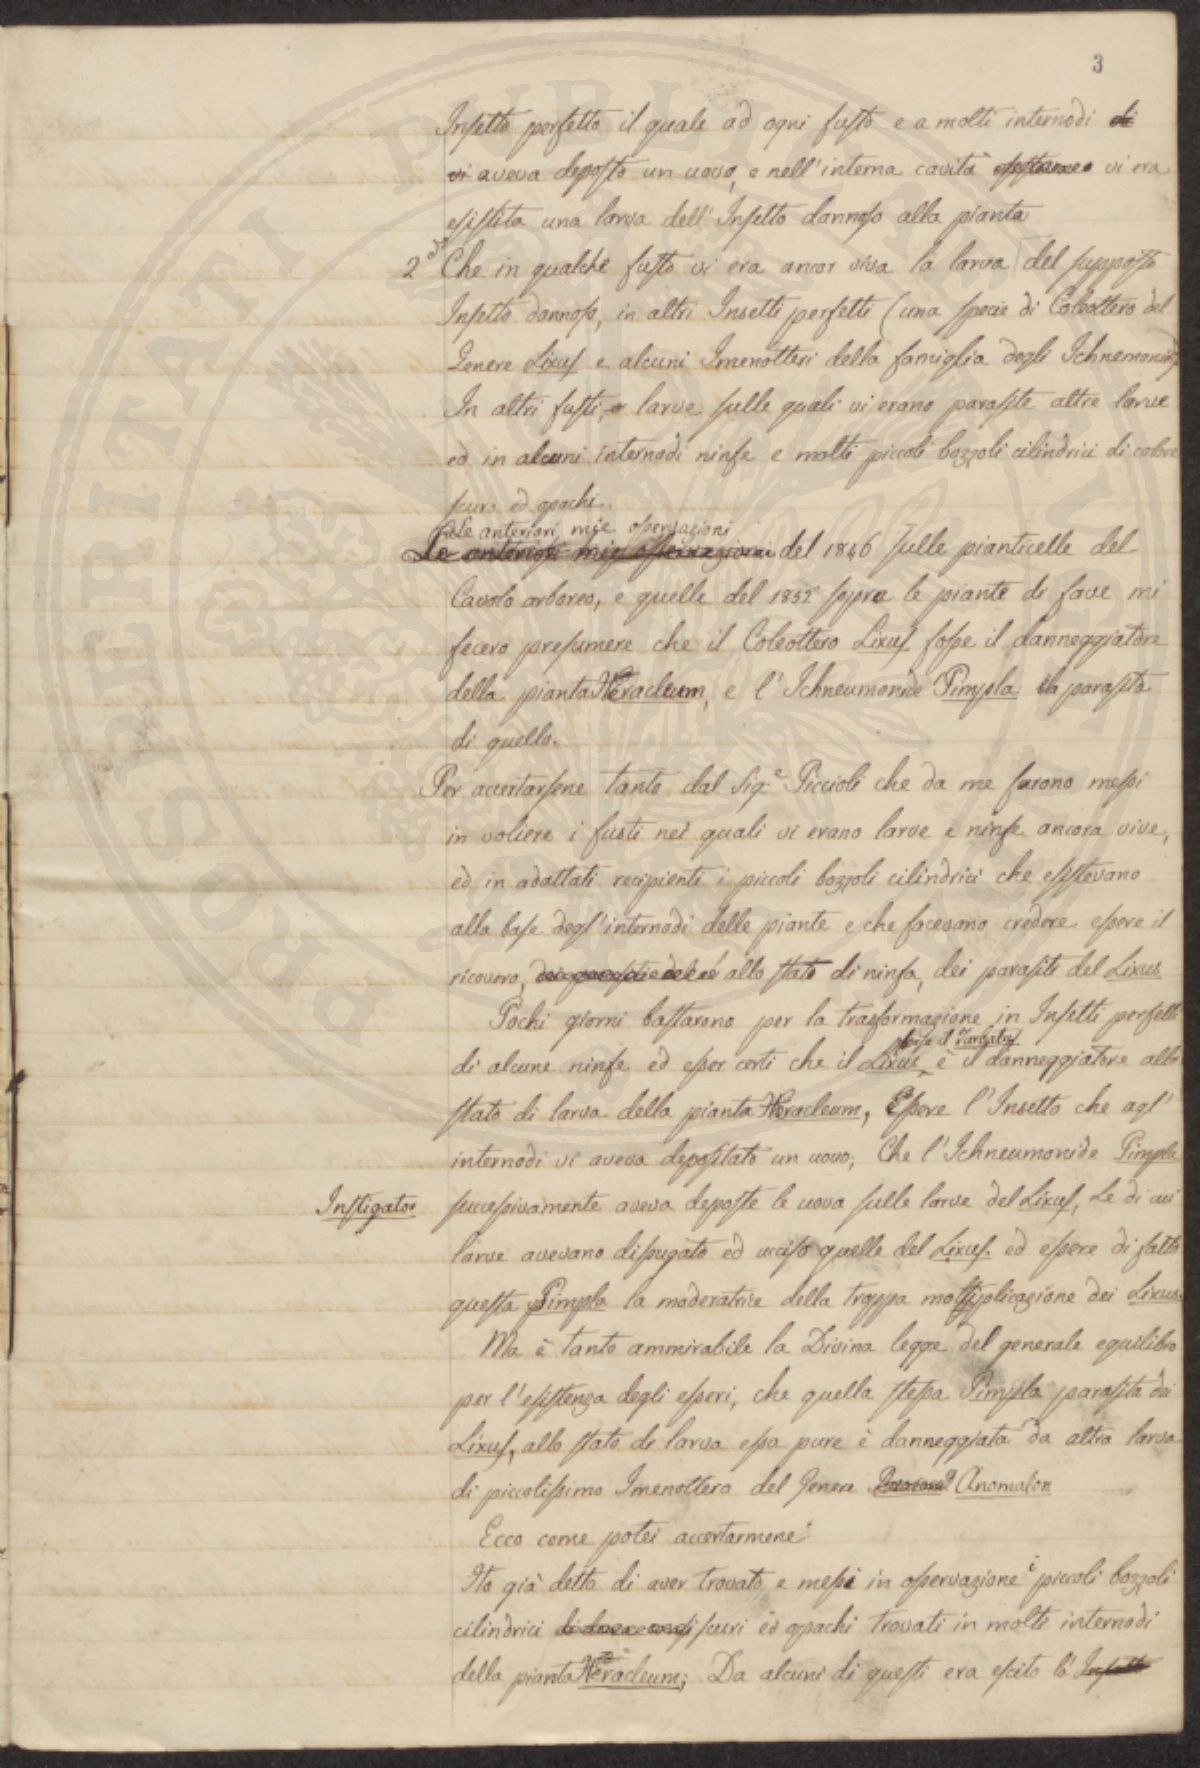 3
Insetto perfetto il quale ad ogni fusto e a molti internodi di
vi aveva deposto un uovo, e nell'interna cavità vi era
esistita una larva dell'Insetto dannoso alla pianta
2° Che in qualche fusto vi era ancor viva la larva del supposto
Insetto dannoso, in altri Insetti perfetti (una specie di Coleottero del
Genere Lixus e alcuni Imenotteri della famiglia degli Ichnemonidi
In altri fusti, larve sulle quali vi erano parasite altre larve
ed in alcuni internodi ninfe e molti piccoli bozzoli cilindrici di colore
scuro ed opachi.
Le anteriori mie osservazioni
Le anteriori mie osservazioni del 1846 sulle pianticelle del
Cavolo arboreo, e quelle del 1852 sopra le piante di fave mi
fecero presumere che il Coleottero Lixus fosse il danneggiatore
della pianta Heracleum, e l'Ichneumonide Pimpla la parasita
di quello.
Per accertarsene tanto dal Sig.e Piccioli che da me furono messi
in voliere i fusti nei quali vi erano larve e ninfe ancora vive,
ed in adattati recipienti i piccoli bozzoli cilindrici che esistevano
alla base degl'internodi delle piante e che facevano credere essere il
ricovero, allo stato di ninfa, dei parasiti del Lixus
Pochi giorni bastarono per la trasformazione in Insetti perfetti
il Turbatus
di alcune ninfe ed esser certi che il Lixus, è il danneggiatore allo
stato di larva della pianta Heracleum, Essere l'Insetto che agl'
internodi vi aveva depositato un uovo; Che l'Ichneumonide Pimpla
Instigator successivamente aveva deposte le uova sulle larve del Lixus, Le di cui
larve avevano disugato ed ucciso quelle del Lixus. ed essere di fatto
questa Pimpla la moderatrice della troppa moltiplicazione dei Lixus.
Ma è tanto ammirabile la Divina legge del generale equilibro
per l'esistenza degli esseri, che quella stessa Pimpla parasita dei
Lixus, allo stato di larva essa pure è danneggiata da altra larva
di piccolissimo Imenottero del Genere Anomalon
Ecco come potei accertarmene:
Ho già detto di aver trovato, e messi in osservazione i piccoli bozzoli
cilindrici scuri ed opachi trovati in molti internodi
della pianta Heracleum; Da alcuni di questi era escito lo Insetto